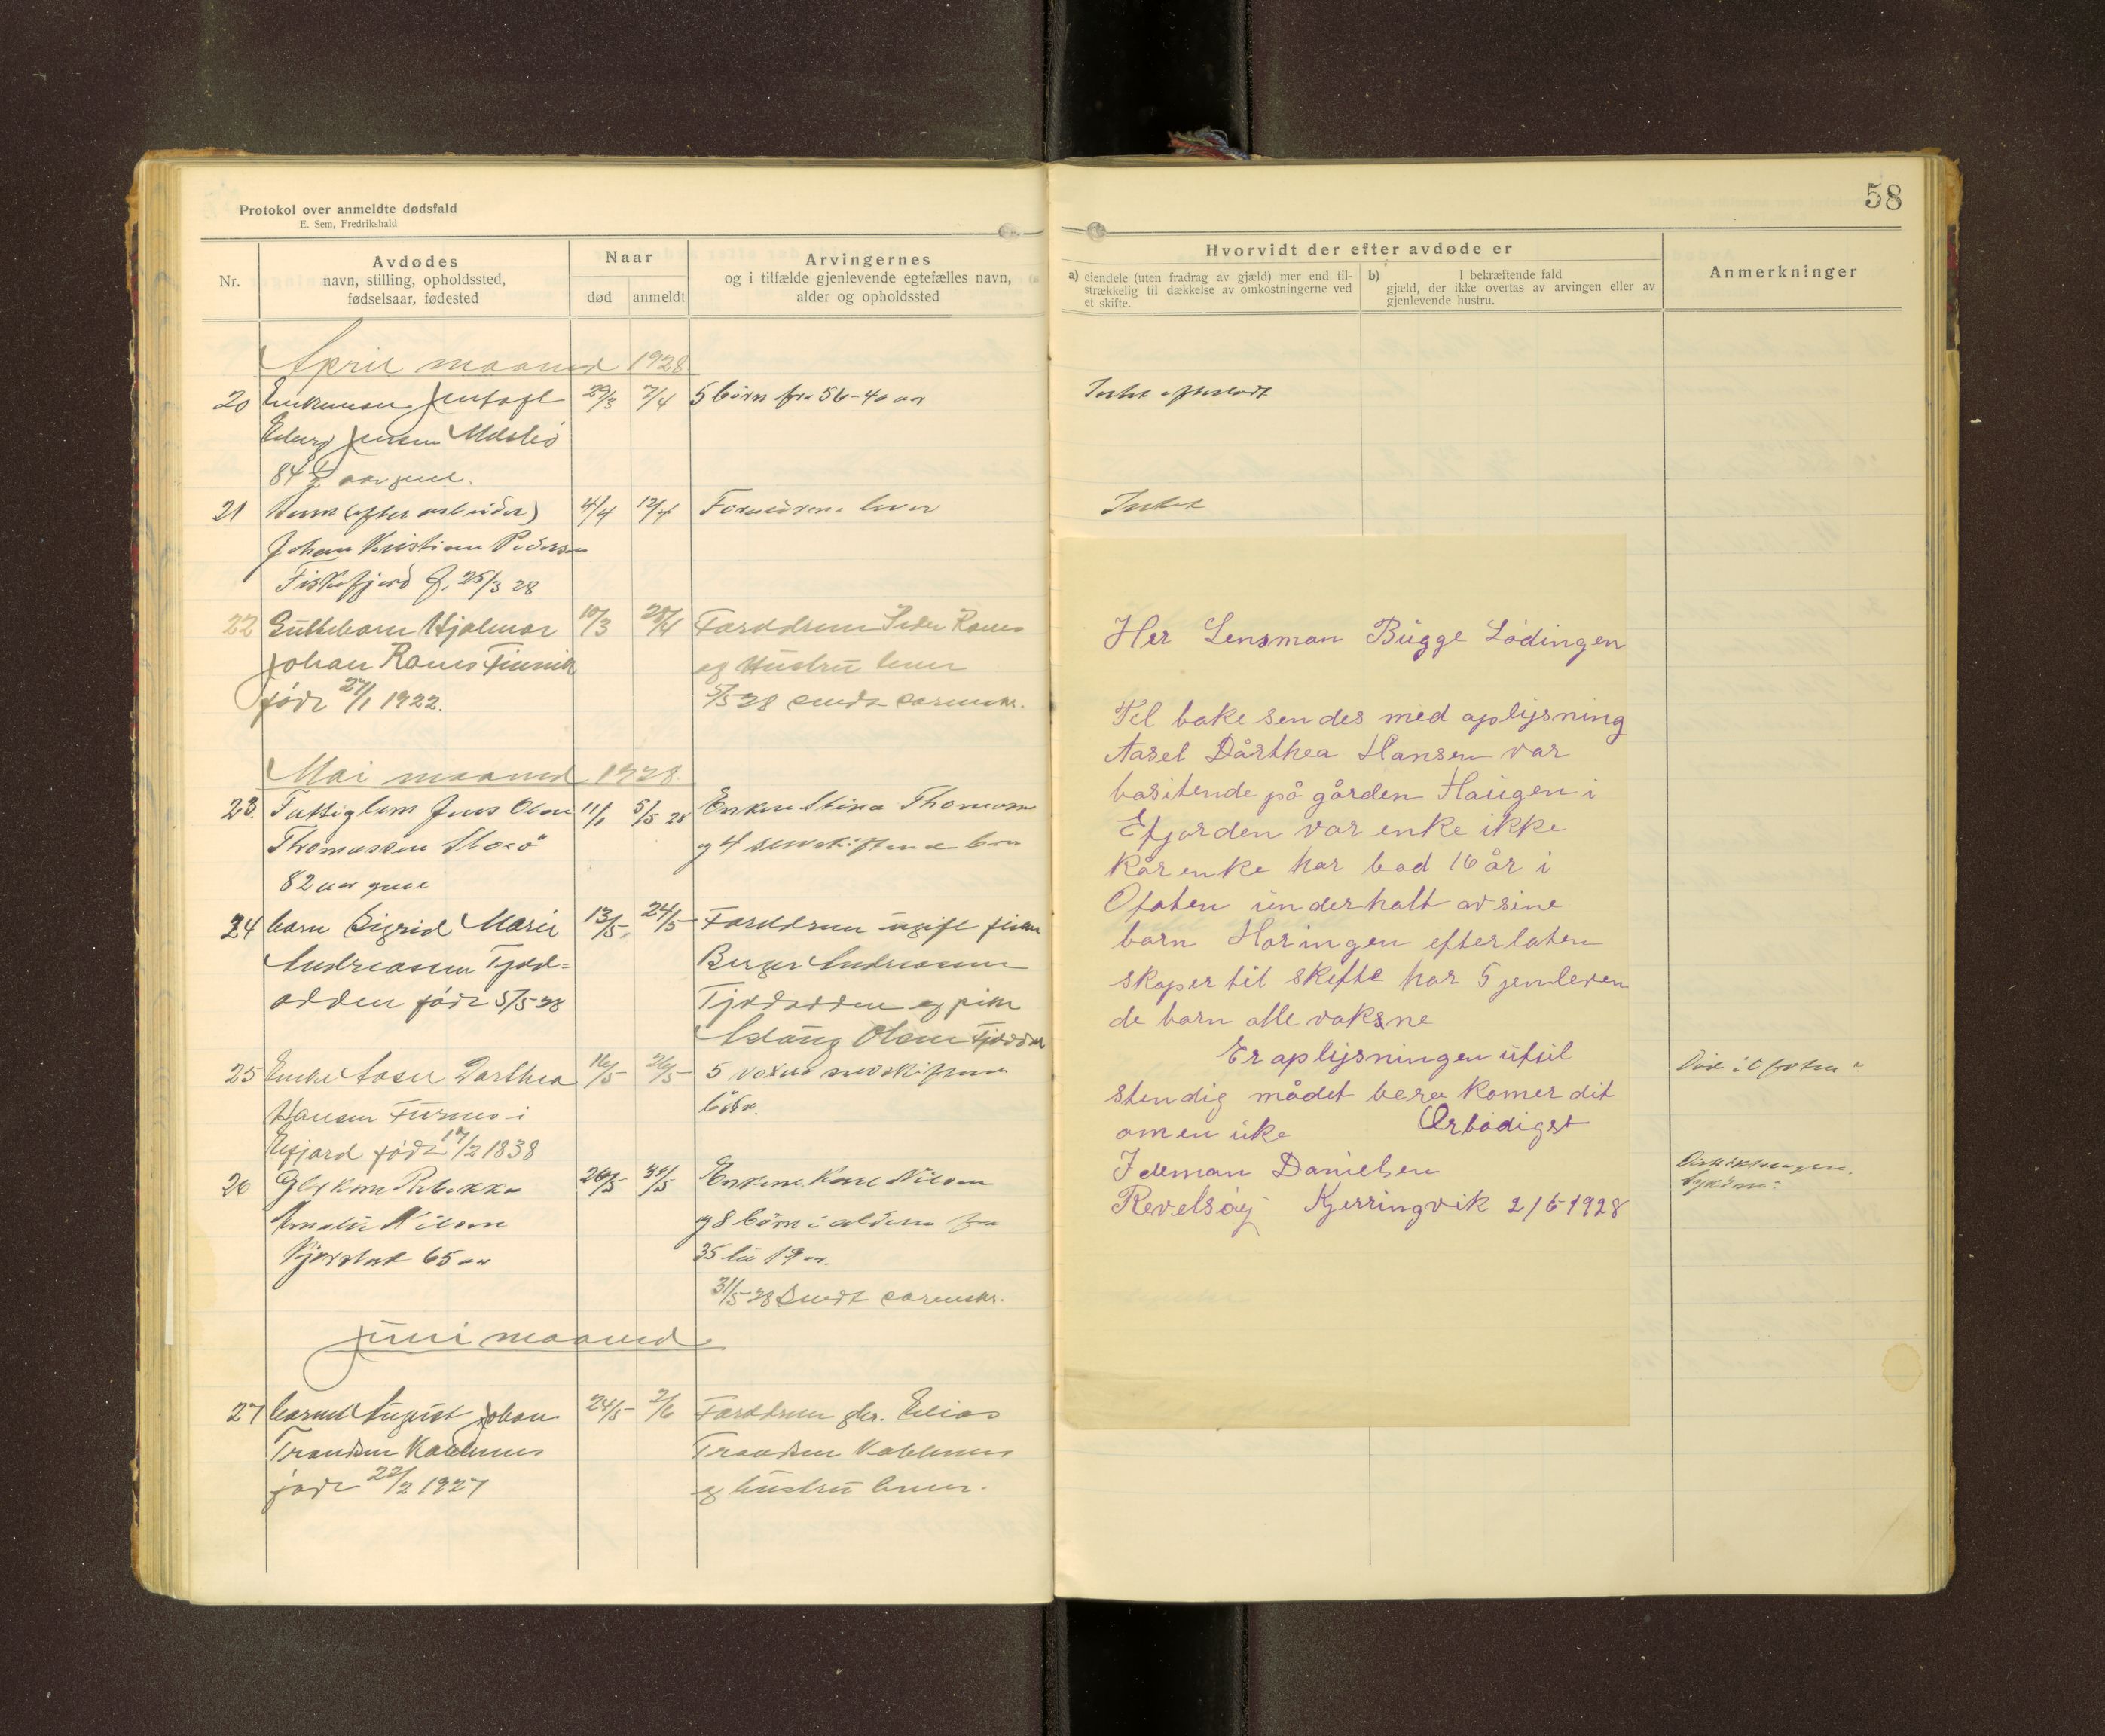 Protokol over anmeldte dødsfald
E. Sem, Fredrikshald
58
Nr.
Avdødes
navn, stilling, opholdssted,
fødselsaar, fødested
Naar
død
anmeldt
Arvingernes
og i tilfælde gjenlevende egtefælles navn,
alder og opholdssted
Hvorvidt der efter avdøde er
a) eiendele (uten fradrag av gjæld) mer end til-
strækkelig til dækkelse av omkostningerne ved
et skifte.
b) I bekræftende fald
gjæld, der ikke overtas av arvingen eller av
gjenlevende hustru.
Anmerkninger
April maaned 1928
20 29/3 7/4 5 børn fra 56-40 aar
Jensen
84 1/2 aar gml.
Intet efterladt
21 4/4 12/4
Johan Kristian Pedersen
Fiskefjord f. 25/3 28
Intet
22 Guttebarn Hjalmar 10/3 28/4 Forældrene Peder Ranes
Johan Ranes og Hustru lever
født 27/1 1922. 5/5 28 sendt sorenskr.
Mai maaned 1928.
23. Fattiglem Jens Olan 11/1 5/5 28 Enken Stina Thomassen
Thomassen og 4 selvskiftende børn
82 aar gml
24 barn Sigrid Marie 13/5 24/5 Forældrene ugift
Andreassen Tjeld=
odden født 5/5 28
Berger Andreassen
Tjeldodden og pike
Aslaug Olsen
25 Enke Aasel Darthea 16/5 26/5 5 voksne selvskiftende
Hansen Furnes i børn.
Efjord født 17/2 1838
Død i Ofoten
26 Rebekka 26/5 31/5 Enkem. Karl Nilsen
Amalie Nilsen og 8 børn i alderen fra
Kjerstad 65 aar 35 til 19 aar.
31/5 28 Sendt sorenskr.
Juni maaned
27 barnet August Johan 24/5 2/6 Forældrene gbr. Elias
Trondsen
født 22/2 1927 og hustru lever.
Her Lensman Bugge Lødingen
Til bake sendes med oplysning
Aasel Dårthea Hansen var
bositende på gården Haugen i
Efjorden var enke ikke
kårenke har bod 16 år i
Ofoten underholt av sine
barn Har ingen efterlaten
skaper til skifte har 5 jenleven
de barn alle voksne
Er oplysningen uful
stendig mådet bero komer dit
om en uke Ørbødigst
Ideman Danielsen
Revelsøy Kjerringvik 2/6-1928